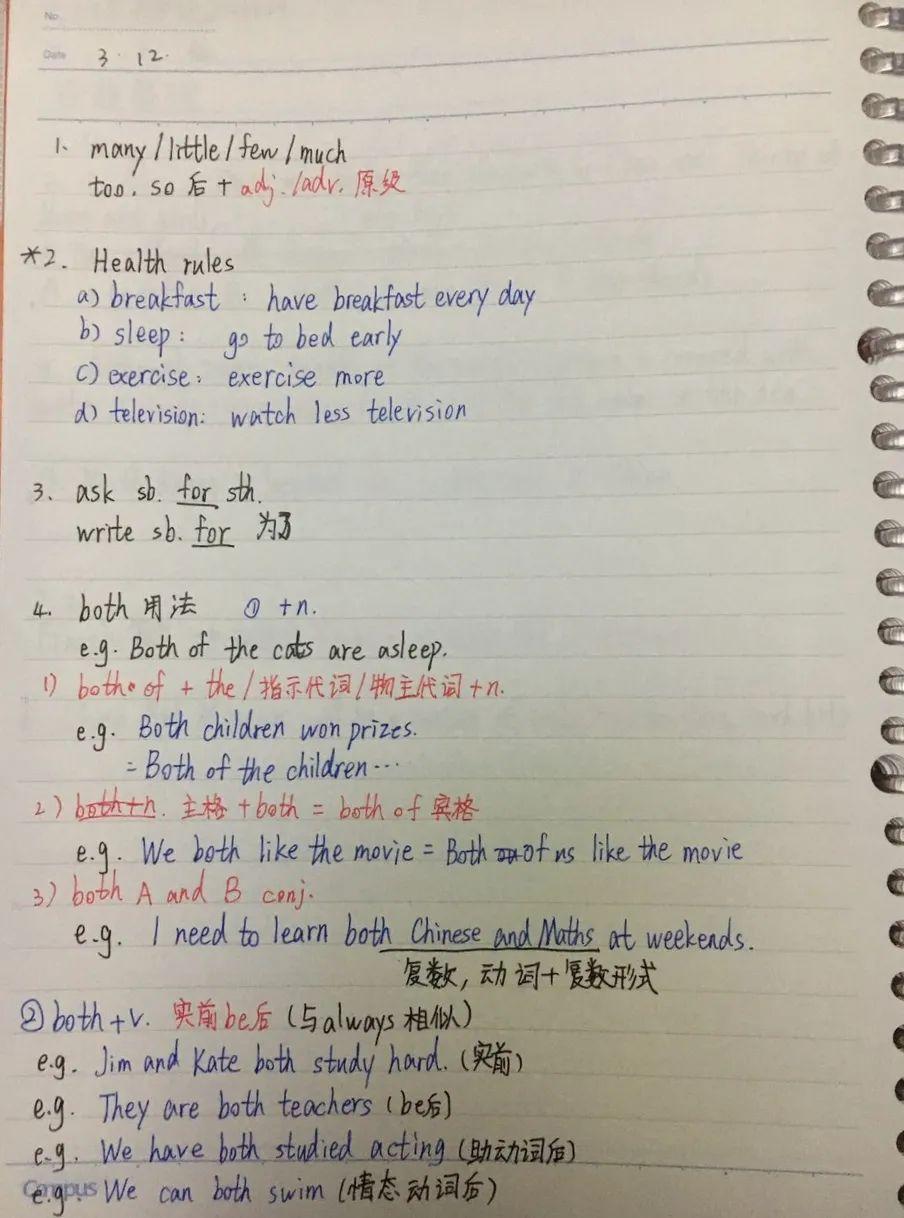 No.
Date 3 · 12 ·
1. many / little / few / much
too. so 后 + adj. /adv. 原级
*2. Health rules
a) breakfast : have breakfast every day
b) sleep : go to bed early
c) exercise : exercise more
d) television : watch less television
3. ask sb. for sth.
write sb. for 为了
4. both 用法 ① +n.
e.g. Both of the cats are asleep.
1) both of + the / 指示代词 / 物主代词 + n.
e.g. Both children won prizes.
= Both of the children ···
2) both+n. 主格 + both = both of 宾格
e.g. We both like the movie = Both of us like the movie
3) both A and B conj.
e.g. I need to learn both Chinese and Maths at weekends.
复数, 动词 + 复数形式
② both + v. 实前be后 (与always 相似)
e.g. Jim and Kate both study hard. (实前)
e.g. They are both teachers (be后)
e.g. We have both studied acting (助动词后)
Campus
e.g. We can both swim (情态动词后)